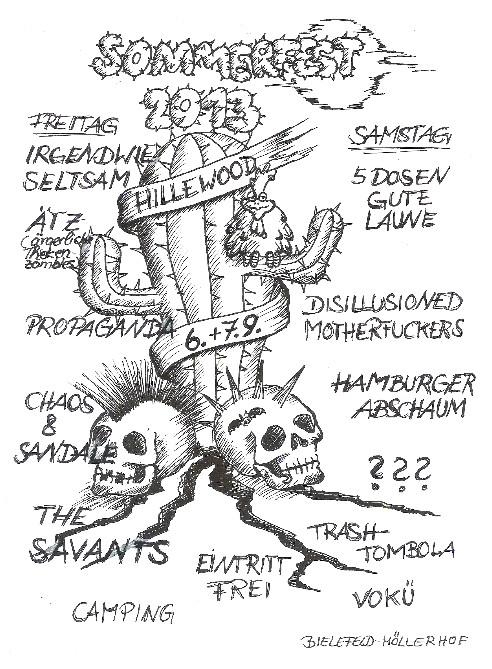 SOMMERFEST
2013
HILLEWOOD
6.+7.9.
FREITAG
IRGENDWIE
SELTSAM
ÄTZ
(ärgerliche
Theken
zombies)
PROPAGANDA
CHAOS
&
SANDALE
THE
SAVANTS
CAMPING
SAMSTAG
5 DOSEN
GUTE
LAUNE
DISILLUSIONED
MOTHERFUCKERS
HAMBURGER
ABSCHAUM
???
TRASH-
TOMBOLA
VOKÜ
EINTRITT
FREI
BIELEFELD-MÖLLERHOF